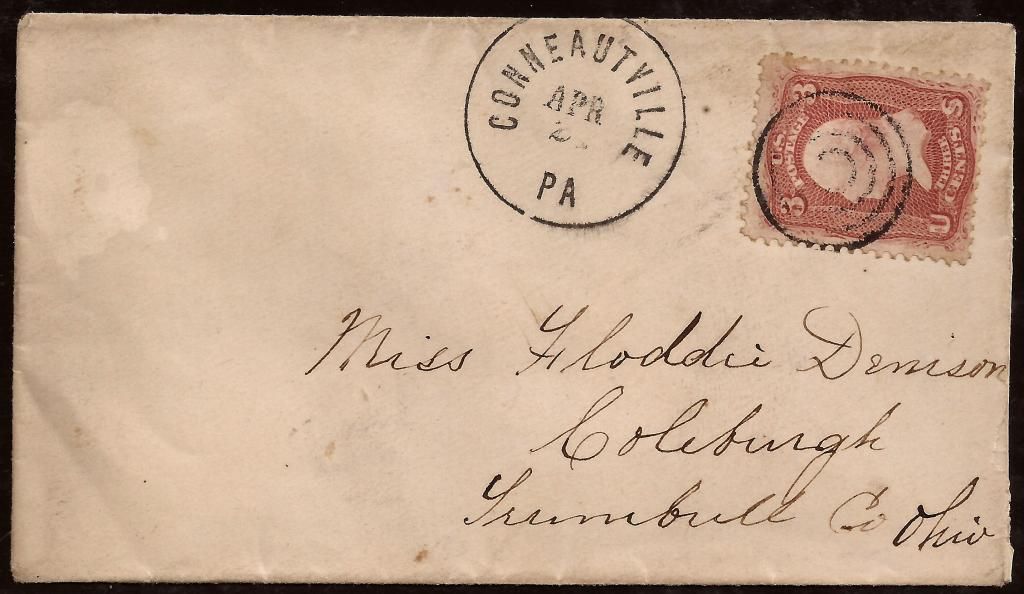 CONNEAUTVILLE
APR
PA
U.S. POSTAGE
3 3
THREE CENTS
U S
Miss Floddie Denison
Coleburgh
Trumbull Co Ohio